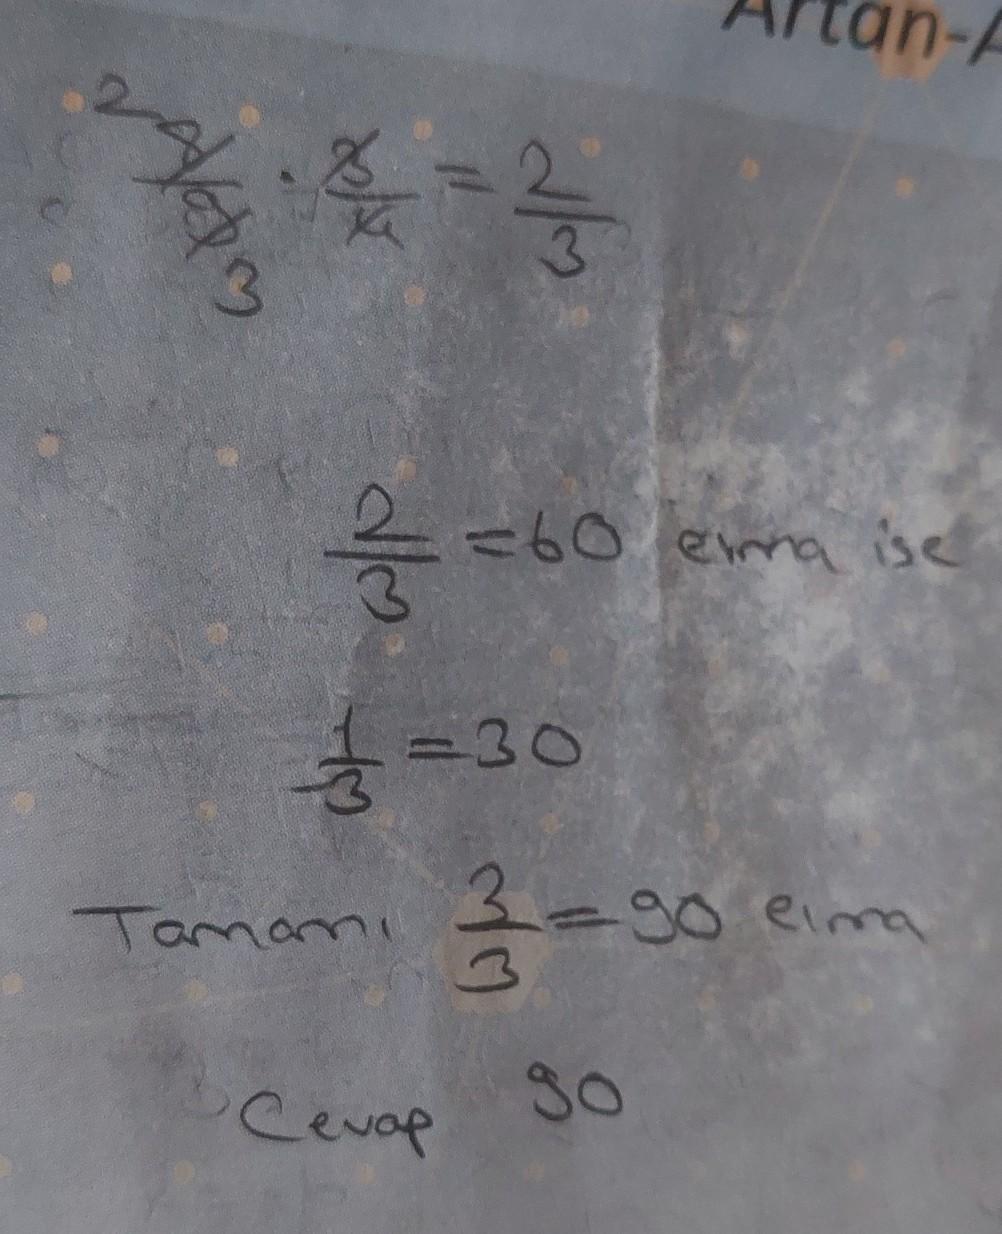 Artan-A
2 8/9 3 · 3/4 = 2/3
2/3 = 60 elma ise
1/3 = 30
Tamamı 3/3 = 90 elma
Cevap 90